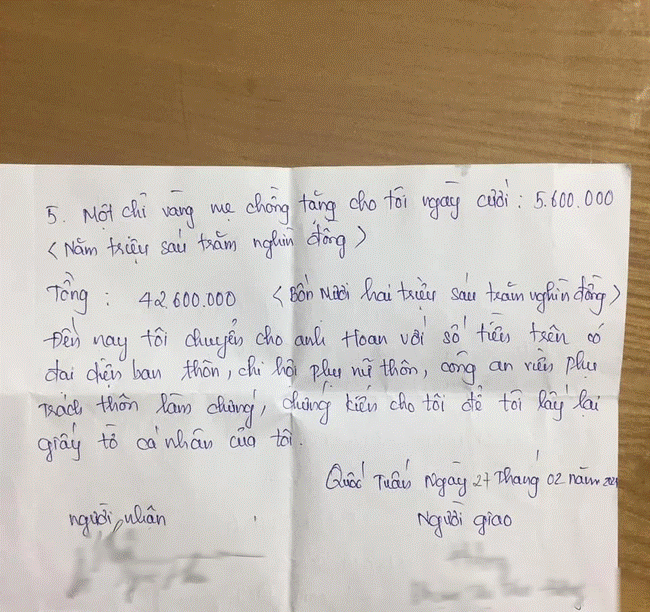 5. Một chỉ vàng mẹ chồng tặng cho tôi ngày cưới : 5.600.000
< Năm triệu sáu trăm nghìn đồng >
Tổng : 42.600.000 < Bốn mươi hai triệu sáu trăm nghìn đồng >
Đến nay tôi chuyển cho anh Hoan với số tiền trên có
đại diện ban thôn, chi hội phụ nữ thôn, công an viên phụ
trách thôn làm chứng, chứng kiến cho tôi để tôi lấy lại
giấy tờ cá nhân của tôi.
Quốc Tuấn Ngày 27 Tháng 02 năm
người nhận Người giao